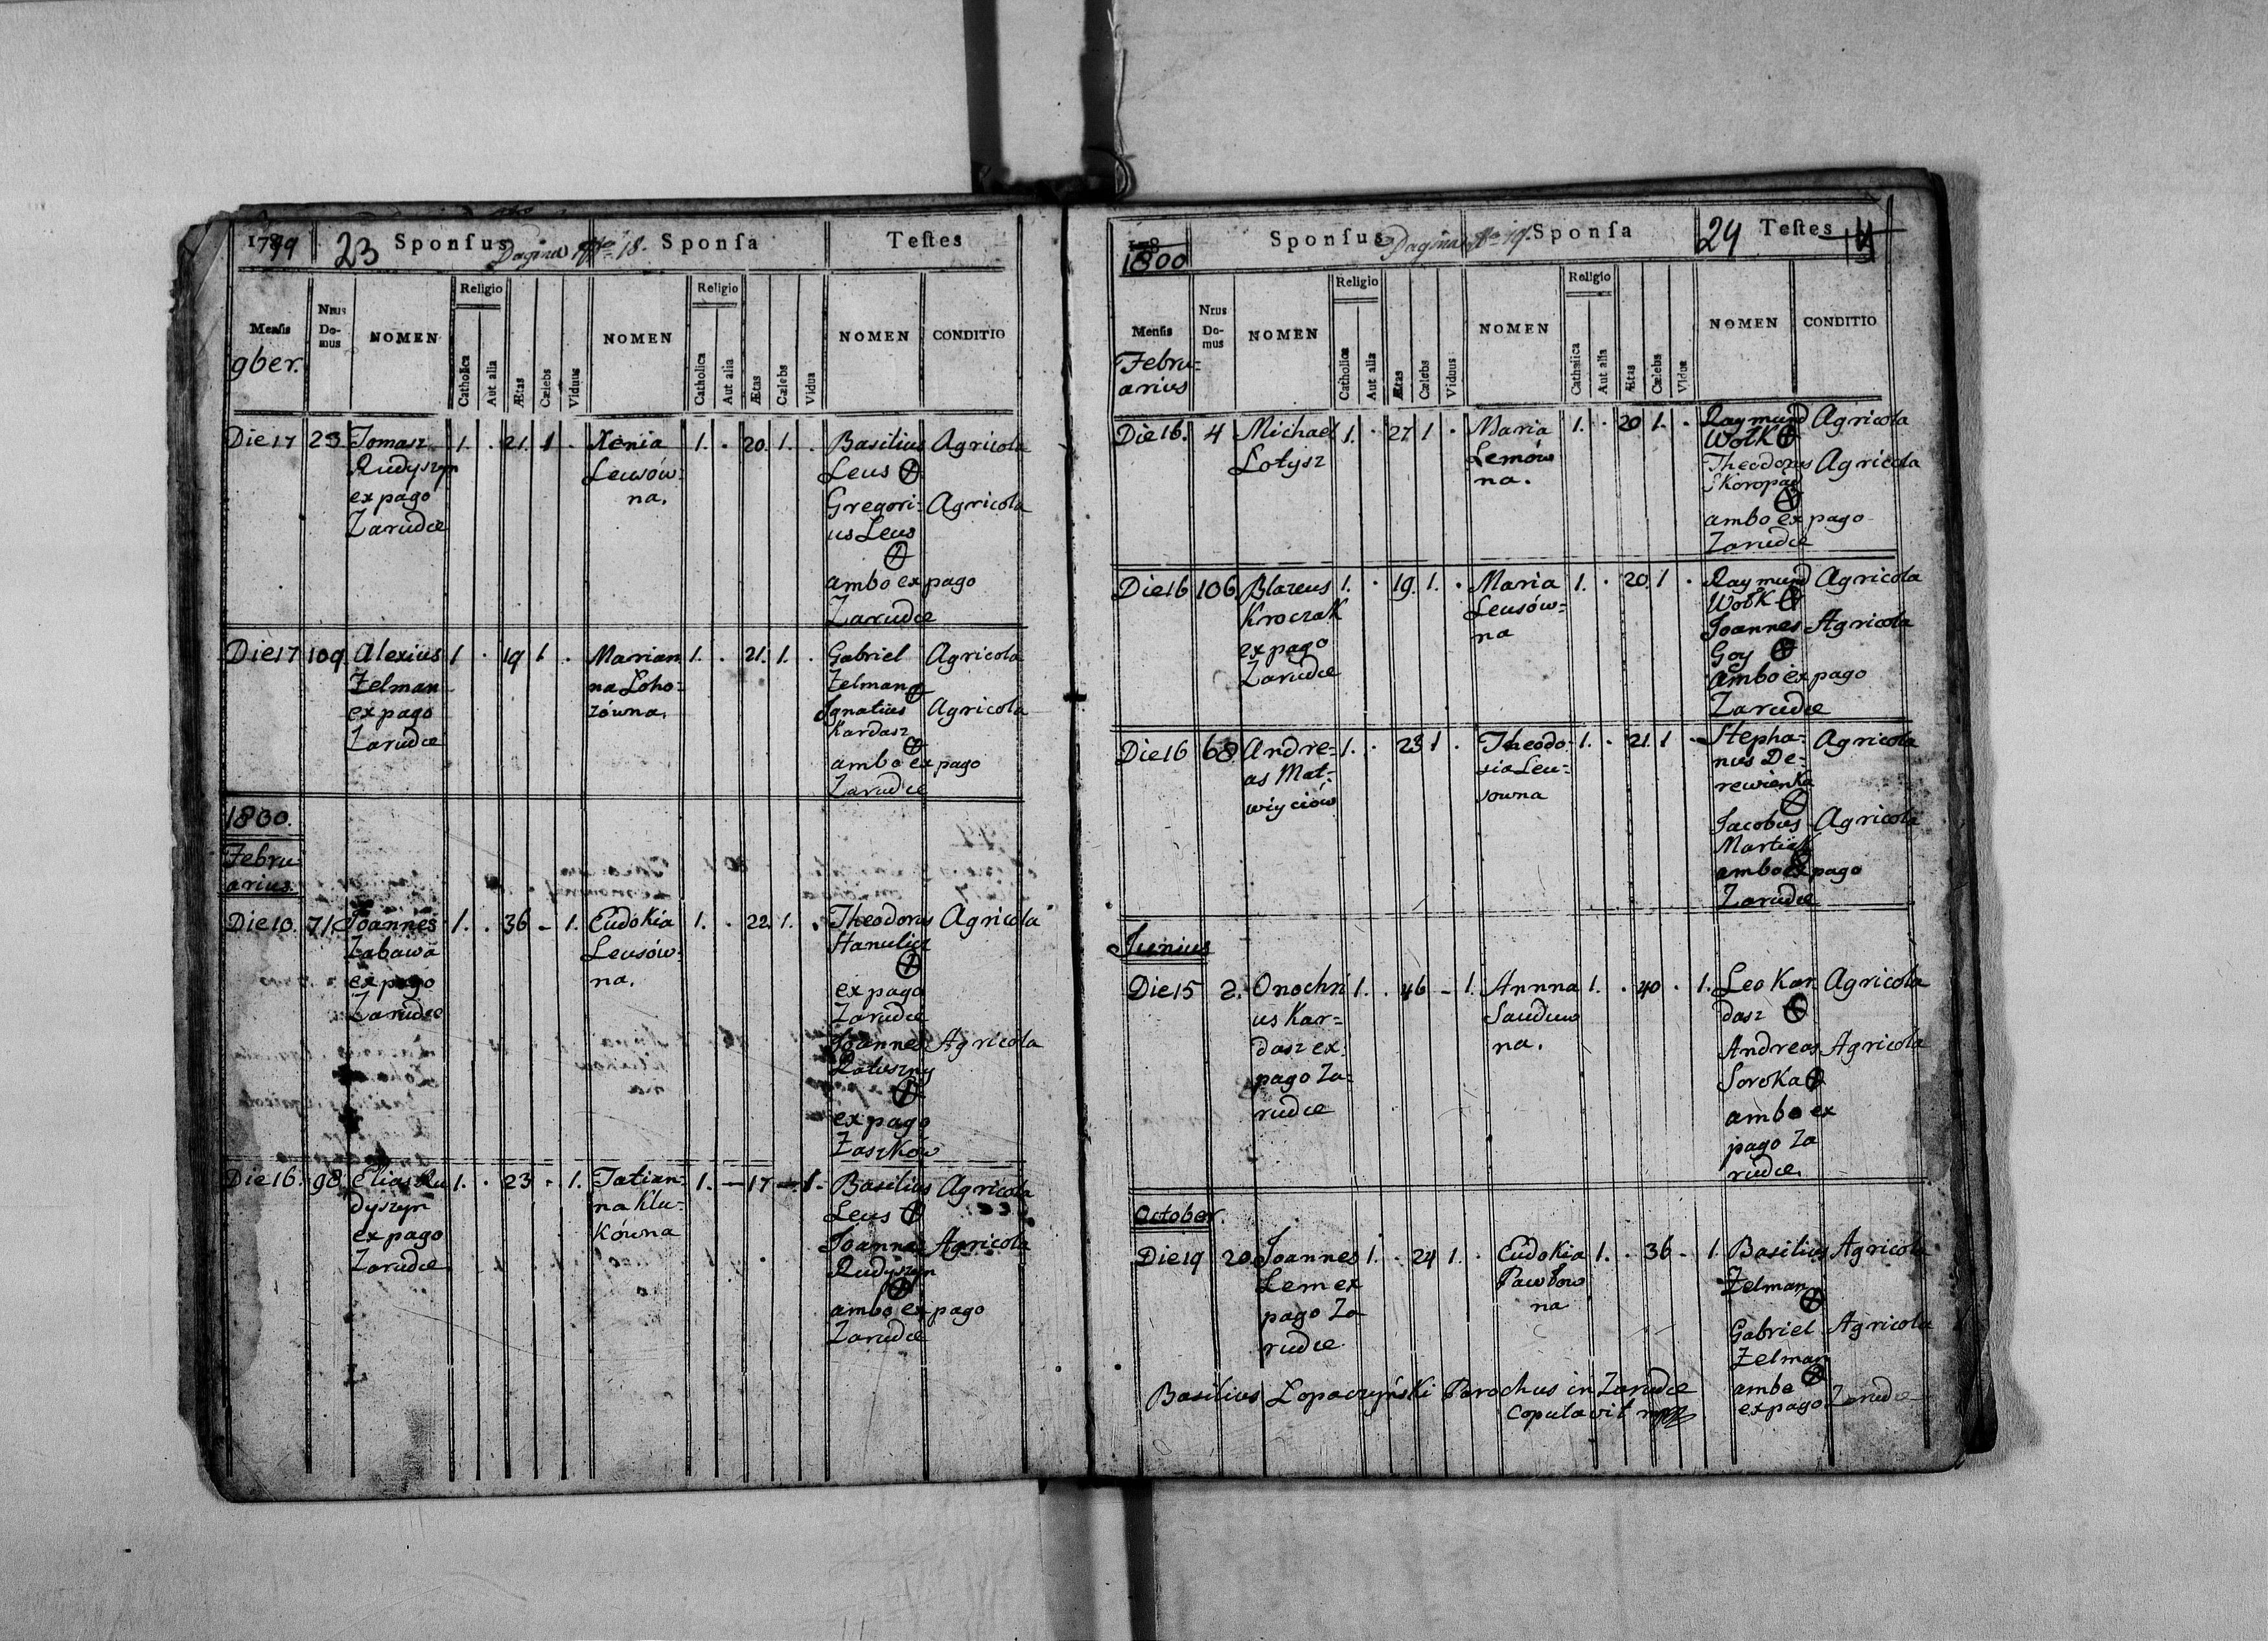 1799 23 Sponsus Pagina Nro 18. Sponsa Testes
Religio Religio
Mensis Nrus Domus NOMEN Catholica Aut alia Ætas Cælebs Viduus NOMEN Catholica Aut alia Ætas Cælebs Vidua NOMEN CONDITIO
9ber.
Die 17 23. Tomasz 1. . 21. 1 . Xenia 1. . 20. 1. . Basilius Agricola
Rudyszyn Leusów: Leus
ex pago na. Gregori: Agricola
Zarudce us Leus
ambo ex pago
Zarudce
Die 17 109. Alexius 1 . 19 1 . Marian 1. . 21. 1. . Gabriel Agricola
Zelman na Loho: Zelman
ex pago zówna. Ignatius Agricola
Zarudce Kardasz
ambo ex pago
Zarudce
1800.
Febru
arius.
Die 10. 71 Joannes 1. . 36 - 1. Eudokia 1. . 22. 1. . Theodorus Agricola
Zabawa Leusów: Hanulicz
ex pago na. ex pago
Zarudce Zarudce
Joannes Agricola
Ratuszny
ex pago
Zaszków
Die 16. 98. Elias Ru 1. . 23 - 1. Tatian: 1. - 17 - 1. Basilius Agricola
dyszyn na Klu: Leus
ex pago kówna Joannes Agricola
Zarudce Rudyszyn
ambo ex pago
Zarudce
178
1800 Sponsus Pagina Nro 19. Sponsa 24 Testes
Religio Religio
Mensis Nrus Domus NOMEN Catholica Aut alia Ætas Cælebs Viduus NOMEN Catholica Aut alia Ætas Cælebs Vidua NOMEN CONDITIO
Febru:
arius
Die 16. 4 Michael 1. . 27 1 . Maria 1. . 20 1. . Raymund Agricola
Lotysz Lemów Wołk
na. Theodorus Agricola
Skoropad
ambo ex pago
Zarudce
Die 16 106. Blazeus 1. . 19. 1. . Maria 1. . 20. 1 . Raymund Agricola
Kroczak Leusów: Wołk
ex pago na Joannes Agricola
Zarudce Goy
ambo ex pago
Zarudce
Die 16 68. Andre: 1. . 23 1 . Theodo: 1. . 21. 1 . Stepha: Agricola
as Mat: sia Leu: nus De:
wiyciów sowna rewienka
Jacobus Agricola
Martiak
ambo ex pago
Zarudce
Junius
Die 15 2. Onochri 1. . 46 - 1. Annna 1. . 40 . 1. Leo Kar Agricola
us Kar= Sauduw dasz
dasz ex na. Andreas Agricola
pago Za: Soroka
rudce ambo ex
pago Za
rudce.
October.
Die 19 20. Joannes 1. . 24 1. . Eudokia 1. . 36 - 1. Basilius Agricola
Lem ex Pawłow Zelman
pago Za na Gabriel Agricola
rudce. Zelman
ambo
ex pago Zarudce
Basilius Łopaczyński Parochus in Zarudce
copulavit mpp